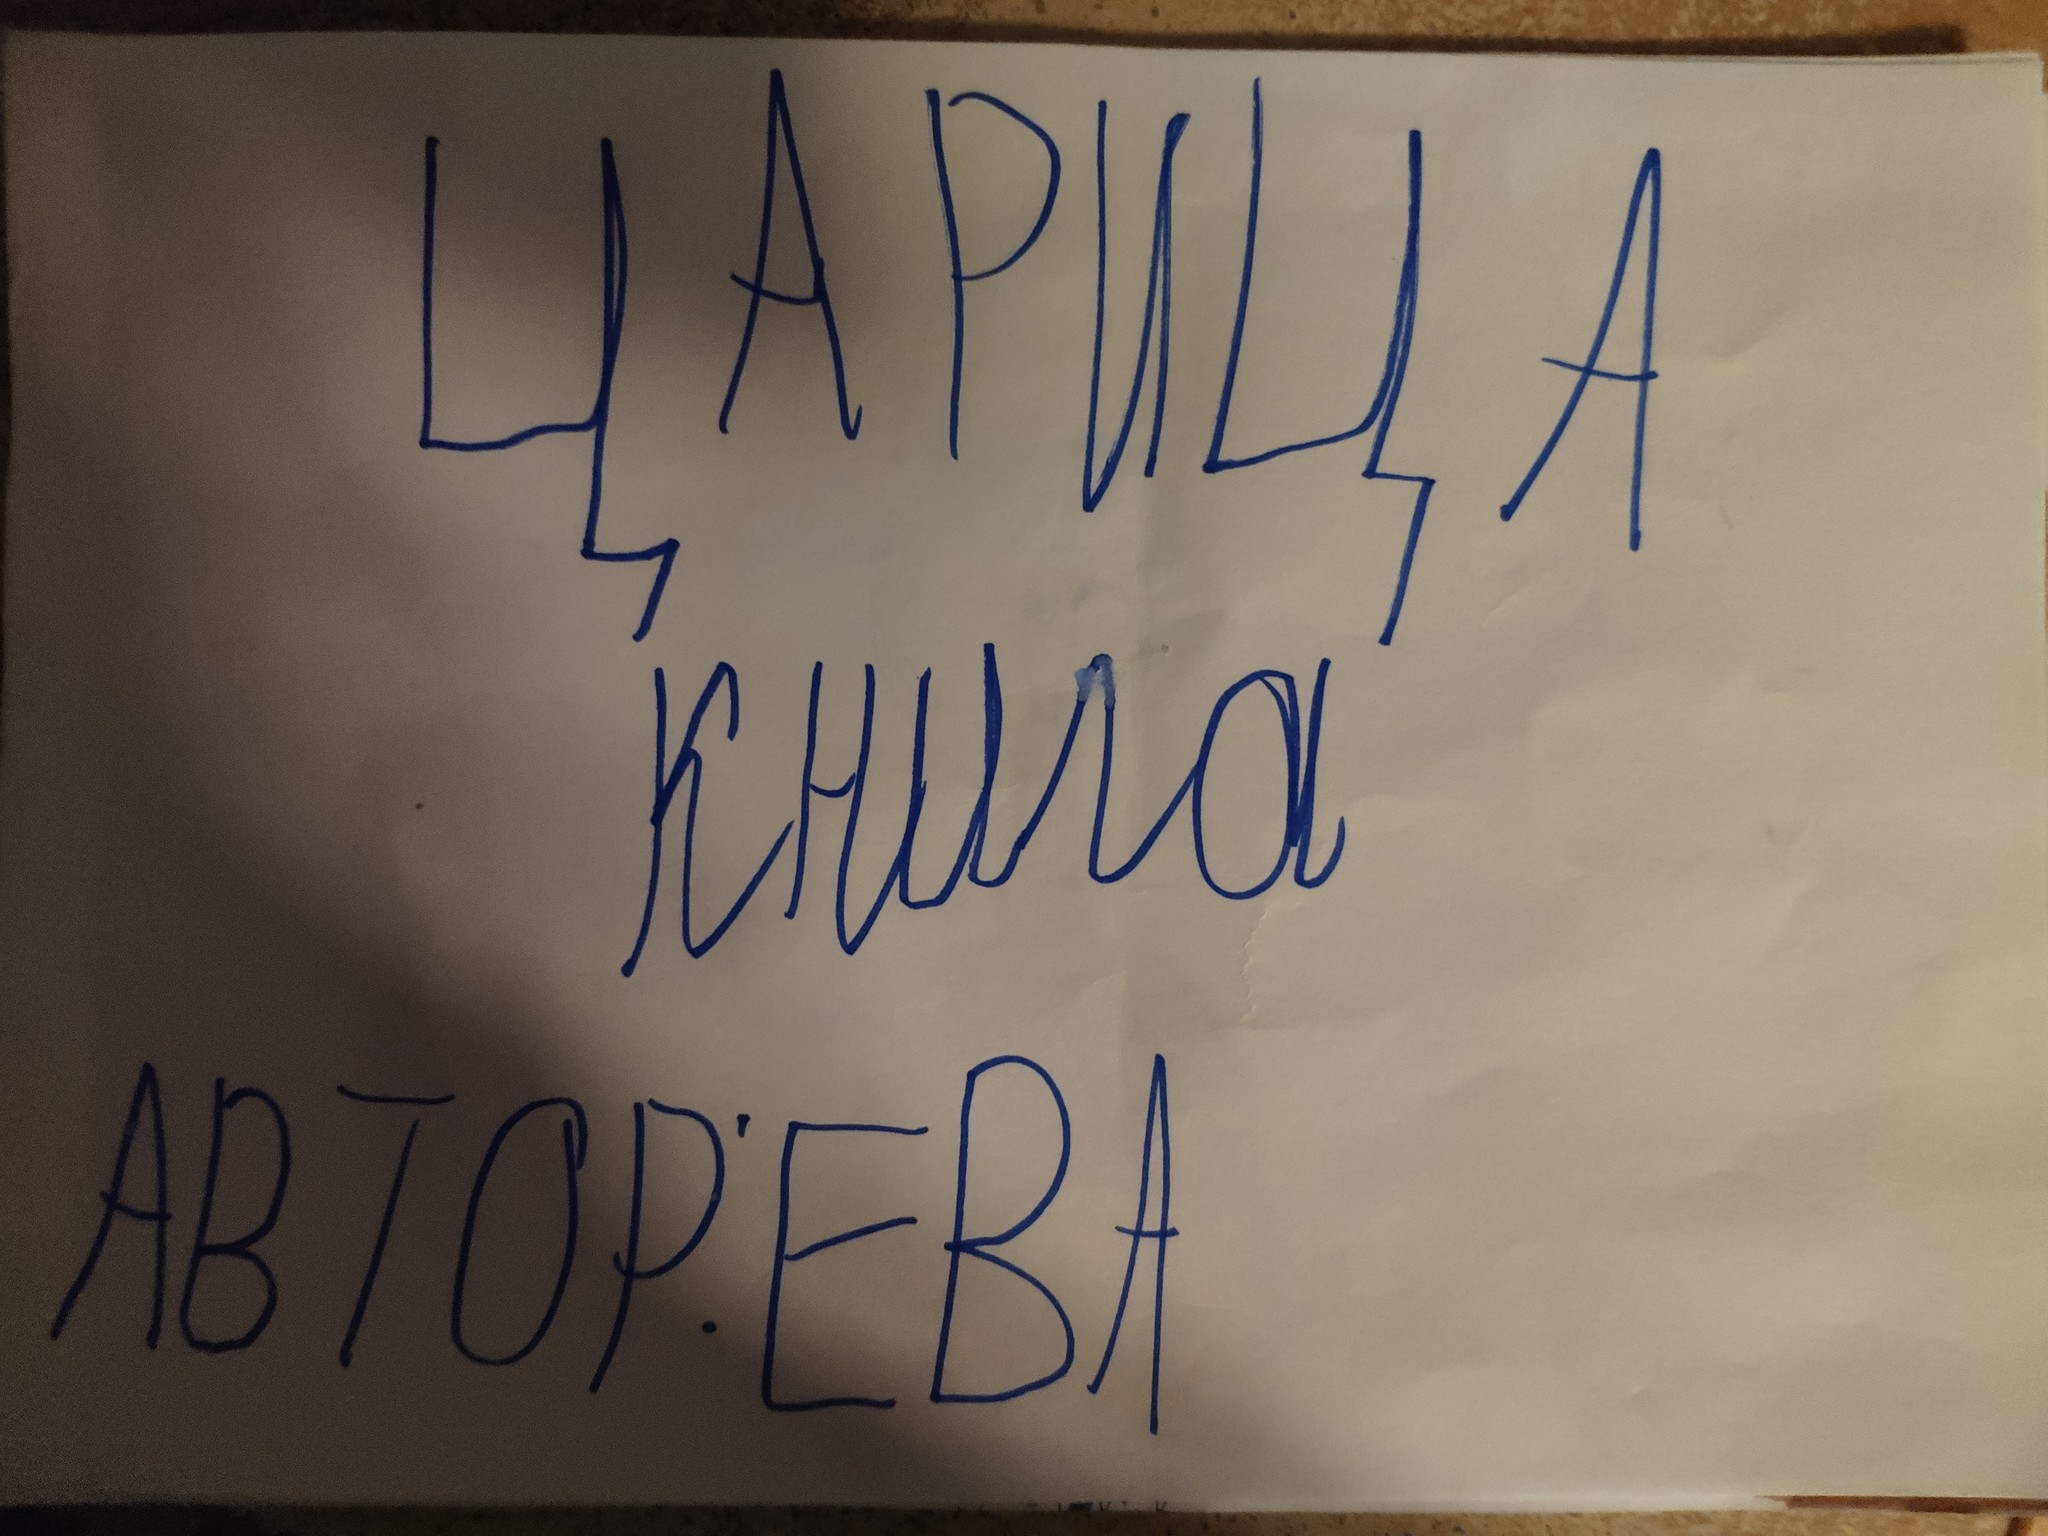 ЦАРИЦА
книга
АВТОР:ЕВА